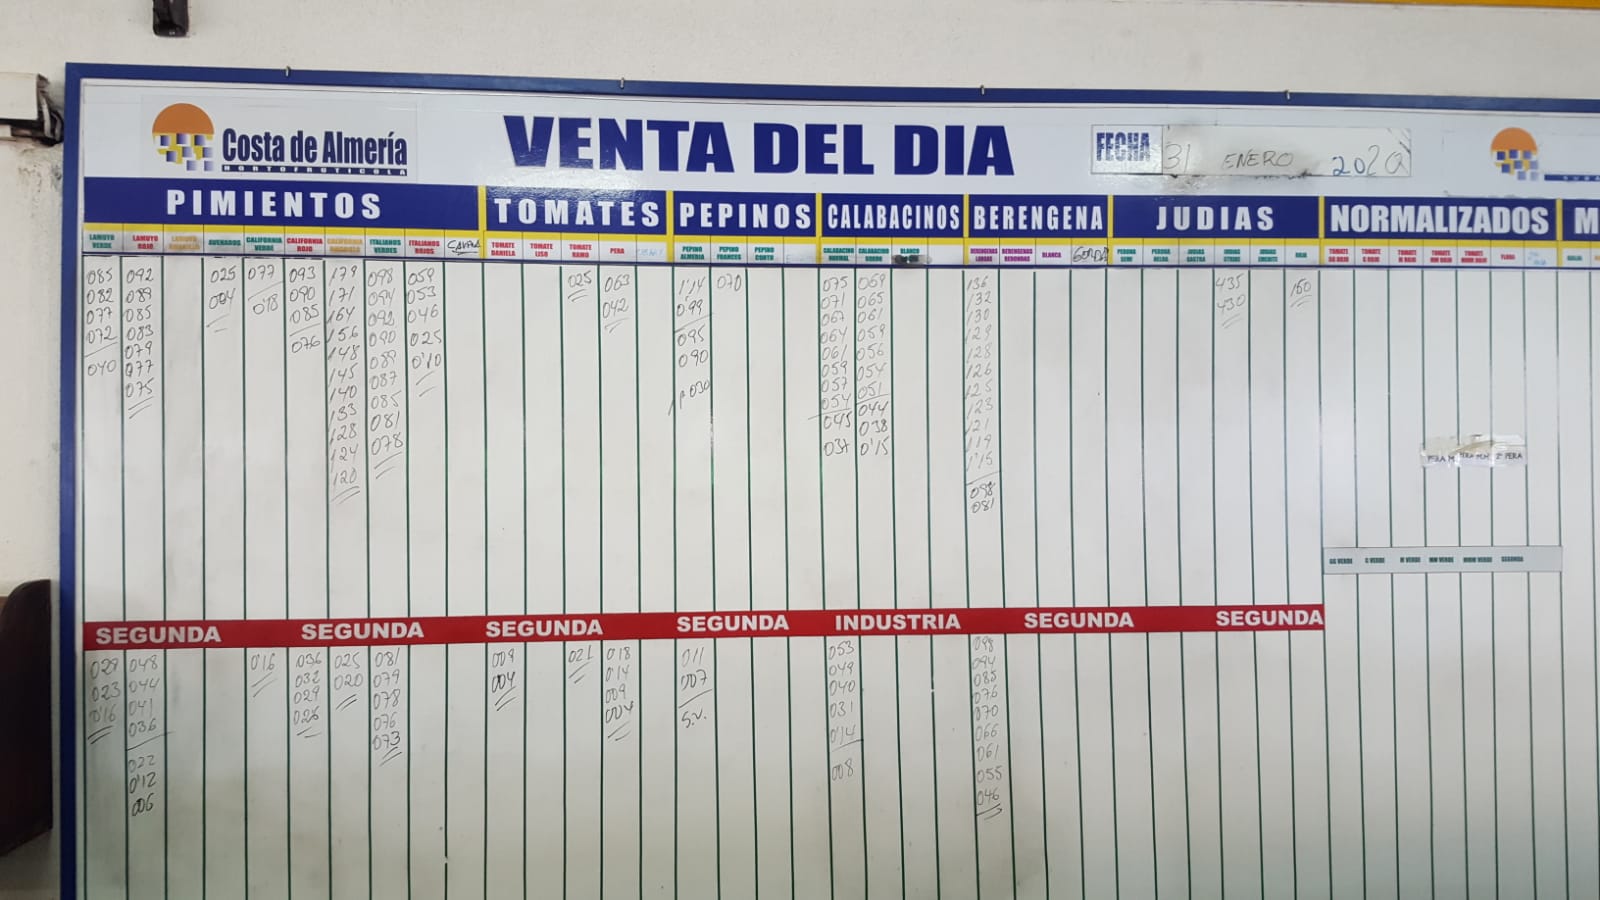 Costa de Almería
HORTOFRUTICOLA
VENTA DEL DIA
FECHA 31 ENERO 2020
PIMIENTOS TOMATES PEPINOS CALABACINOS BERENGENA JUDIAS NORMALIZADOS M
LAMUYO VERDE
LAMUYO ROJO
ASURADOS
CALIFORNIA VERDE
CALIFORNIA ROJO
ITALIANOS VERDES
ITALIANOS ROJOS
TOMATE DANIELA
TOMATE LISO
TOMATE RAMO
PERA
PEPINO ALMERIA
PEPINO FRANCES
PEPINO CORTO
CALABACINO NORMAL
CALABACINO GORDO
BLANCO
BERENGENAS LARGAS
BERENGENAS REDONDAS
BLANCA
GORDA
PERONA SEMI
PERONA HELDA
JUDIAS
JUDIAS STRIKE
ROJA
085
082
077
072
040
092
089
085
083
079
077
075
025
004
077
018
093
090
085
076
179
171
164
156
148
145
140
133
128
124
120
098
094
092
090
089
087
085
081
078
059
053
046
025
0'10
025
063
042
1'14
099
095
090
030
070
075
071
067
064
061
059
057
054
045
037
069
065
061
059
056
054
051
044
038
0'15
136
132
130
129
128
126
125
123
121
119
1'15
098
081
435
430
160
PERA
PERA
GG VERDE G VERDE M VERDE MM VERDE MMM VERDE SEGUNDA
SEGUNDA SEGUNDA SEGUNDA SEGUNDA INDUSTRIA SEGUNDA SEGUNDA
029
023
0'16
048
044
041
036
022
0'12
006
0'16
036
032
029
026
025
020
081
079
078
076
073
009
004
021
018
014
009
004
011
007
S.V.
053
049
040
031
0'14
008
098
094
085
076
070
066
061
055
046